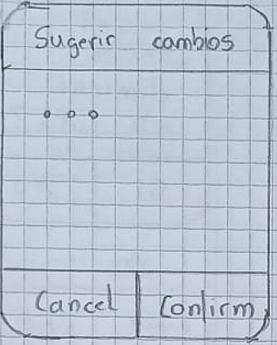 Sugerir cambios
...
Cancel Confirm